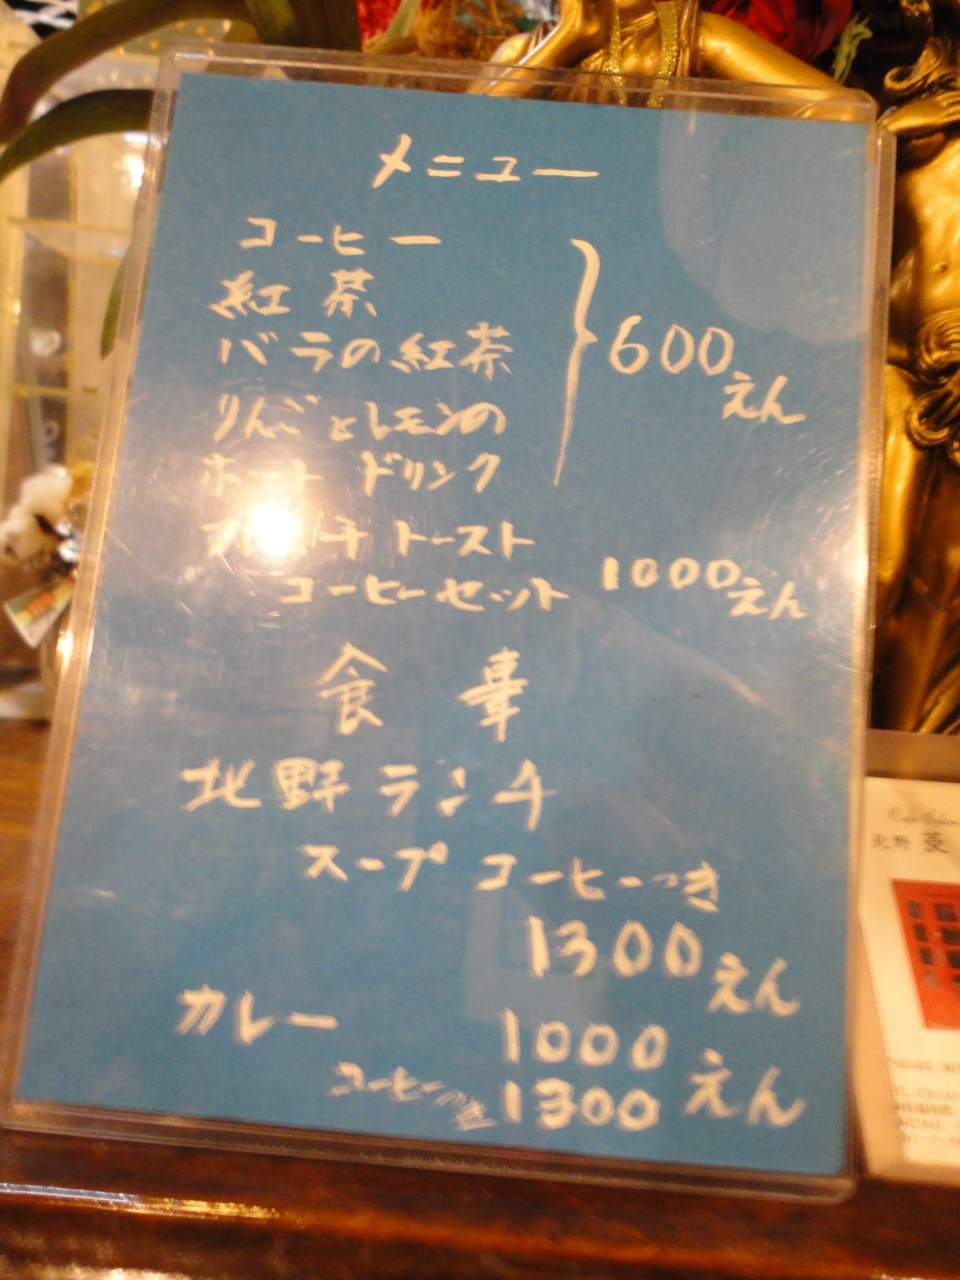 メニュー
コーヒー
紅茶
バラの紅茶
600えん
りんごとレモンの
ホットドリンク
フレンチトースト
コーヒーセット 1000えん
食事
北野ランチ
スープ コーヒーつき
1300えん
カレー 1000
コーヒーつき 1300 えん
北野 菱